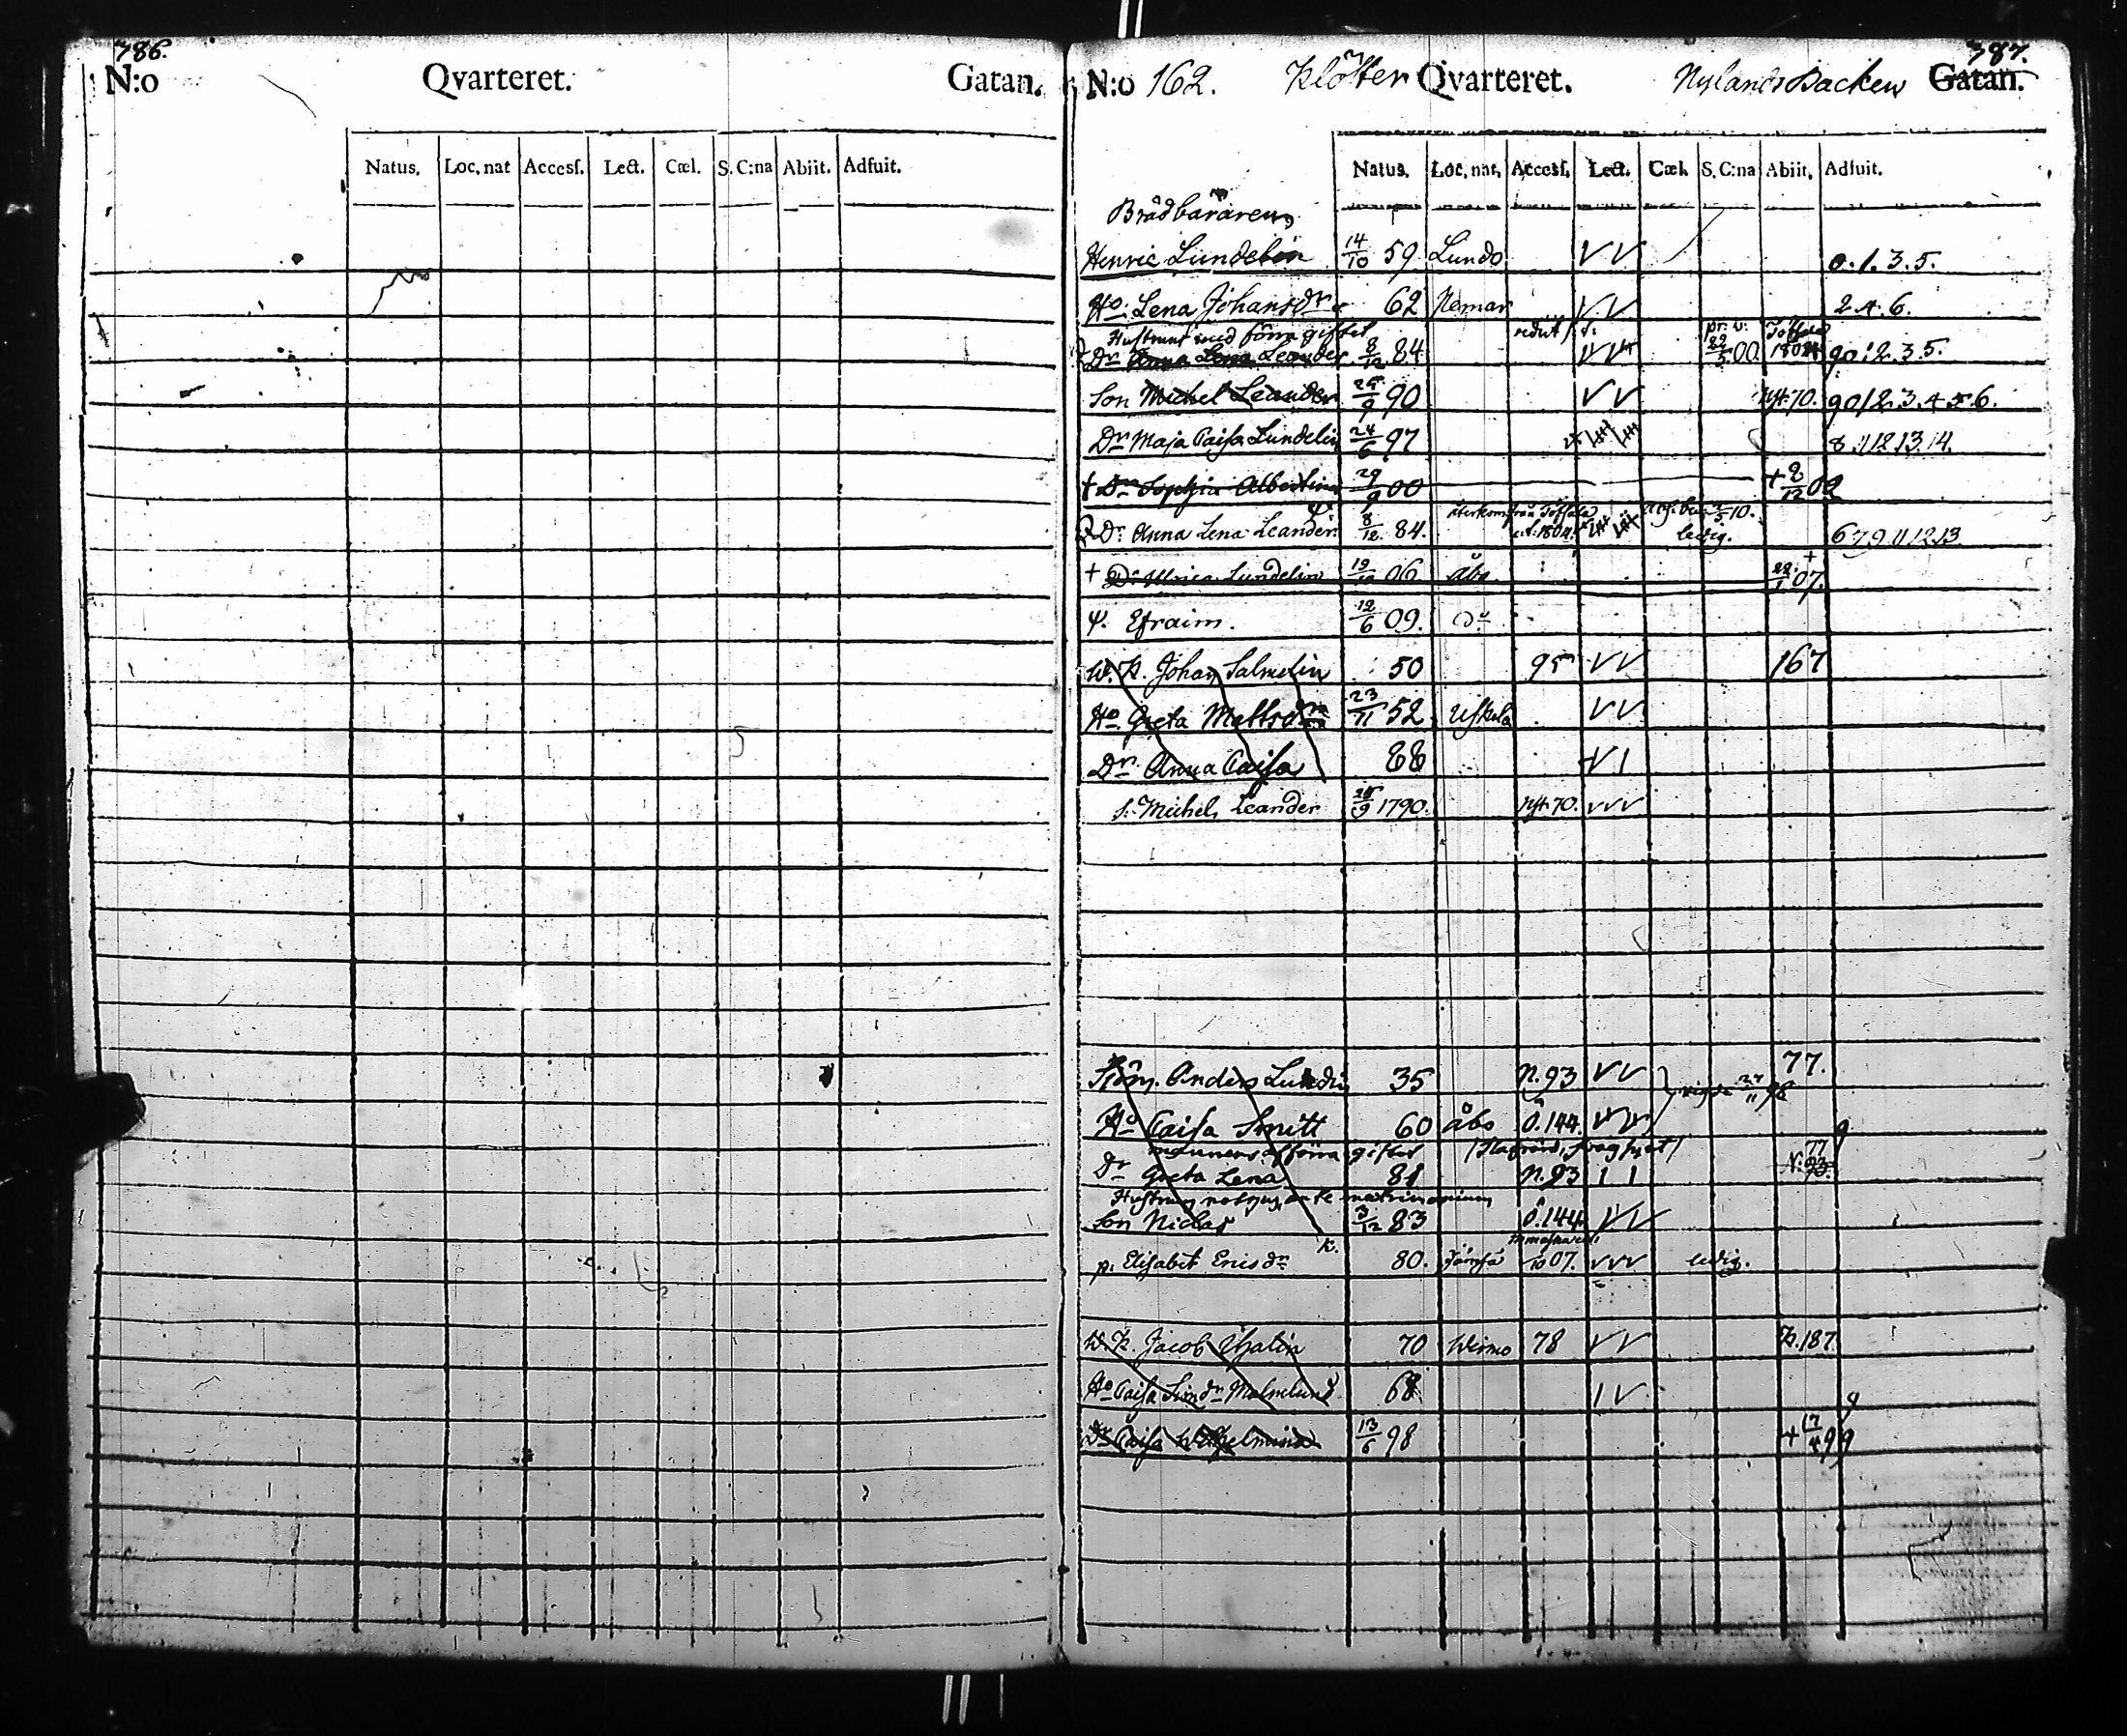 786.
N:o Qvarteret. Gatan.
Natus. Loc. nat Accesſ. Lect. Cœl. S. C:na Abiit. Adfuit.
787.
N:o 162. Klöster Qvarteret. Nylands Backen Gatan.
Natus. Loc, nat. Accesſ. Lect. Cœl. S. C:na Abiit. Adfuit.
Brädbäraren
Henric Lundelin 14/10 59 Lundo 0. 1. 3. 5.
Ho: Lena Johansdr 62 Nemar 2. 4. 6.
Hustrun med förra giftet
Dr Anna Lena Leander 8/12 84 22/5 00 1802 90 1 2. 3. 5.
Son Michel Leander 25/9 90 Nyt. 70. 90 1 2. 3. 4. 5. 6.
Dr Maja Caisa Lundelin 24/6 97 8. 11 12. 13. 14.
+ Dr Sophia Albertina 29/9 00 + 2/12 02
återkom från Töffsala
Dr Anna Lena Leander 8/12. 84. 1804 ledig. 6 7. 9. 11. 12. 13
+ Dr Ulrica Lundelin 19/10 06 Åbo + 22/1 07.
Efraim. 12/6 09. Do
W. K. Johan Salmelin 50 95 167
Ho Greta Mattsdr 23/11 52 Uskela
Dr Anna Caisa 88
S. Michel Leander 25/9 1790. Nyt. 70.
Anders Lundin 35 N. 93 77.
vigde 24/11 98
Ho Caisa Smitt 60 Åbo Ö. 144
mannens förra giftet
Dr Greta Lena 81 N. 93 77 N. 93.
Hustrun ante matrimonium
Son Niclas 3/12 83 Ö. 144
p. Elisabet Ericsdr 80. Jämsä 10 07. ledig.
W. K. Jacob Thalin 70 Wirmo 78 K. 187
Ho Caisa Simdr Malmlund 68 9
Dr Caisa Wilhelmina 13/6 98 + 17/4 99